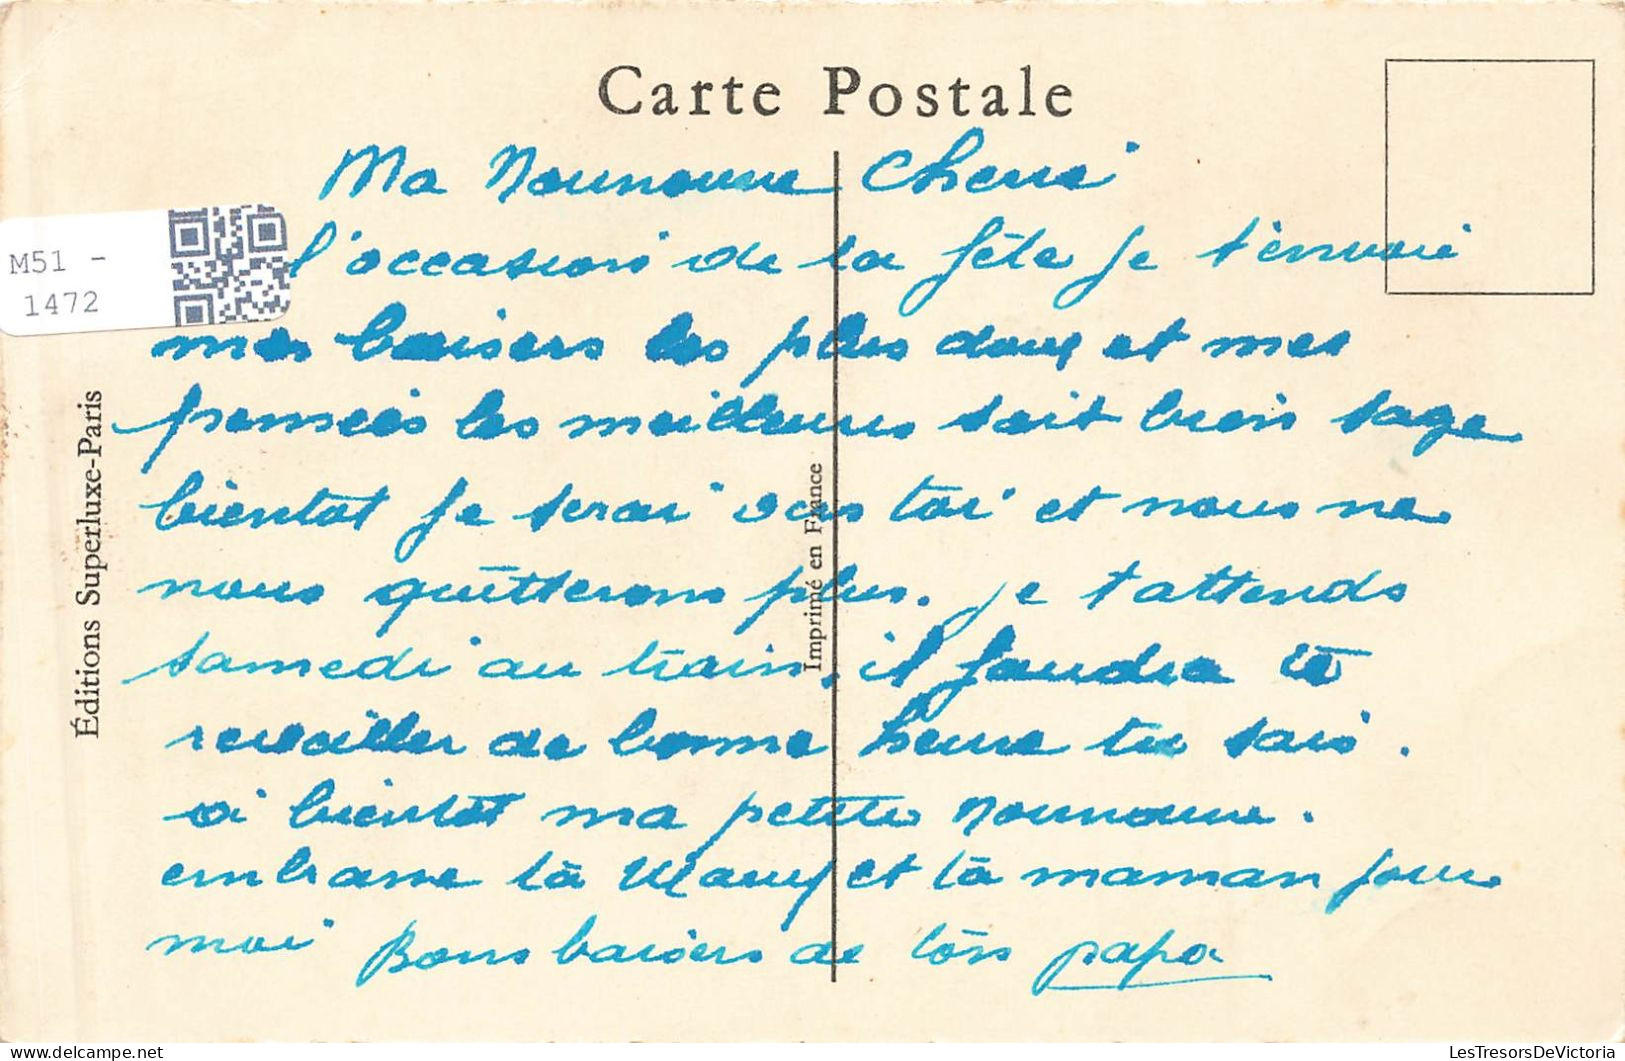 Carte Postale
Ma Nounoune Cherie
l'occasion de ta fête je t'envoie
mes baisers les plus doux et mes
pensées les meilleures soit bien sage
bientot je serai vers toi et nous ne
nous quitterons plus. je t'attends
samedi au train. il faudra te
reveiller de bonne heure tu sais.
a bientôt ma petite Nounoune.
embrasse ta et ta maman pour
moi Bons baisers de ton papa
Éditions Superluxe-Paris
Imprimé en France
M51 -
1472
LesTresorsDeVictoria